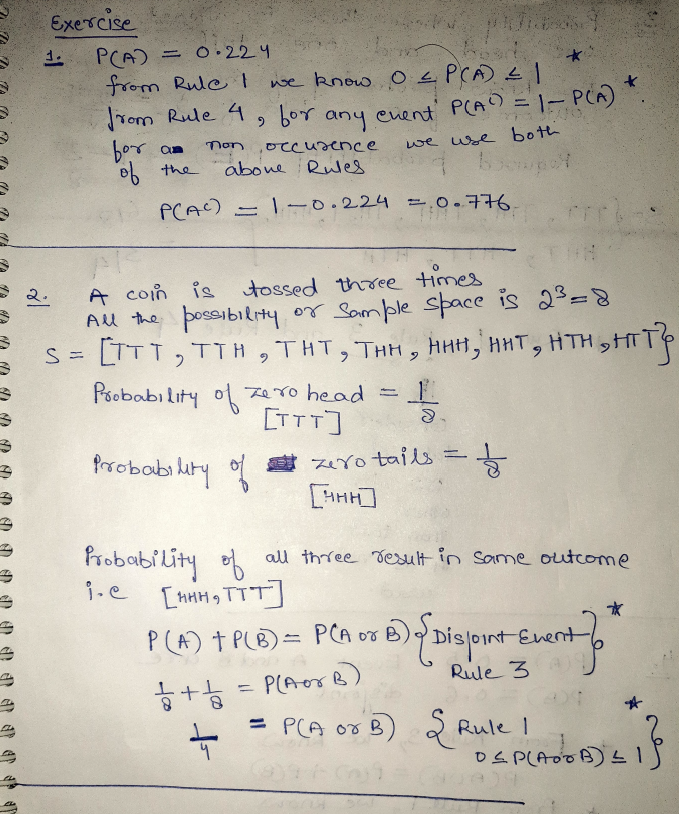 Exercise
1. P(A) = 0.224
from Rule 1 we know 0 ≤ P(A) ≤ 1 *
from Rule 4, for any event P(Aᶜ) = 1 - P(A) *
for an non occurence we use both
of the above Rules
P(Aᶜ) = 1 - 0.224 = 0.776
2. A coin is tossed three times
All the possibility or Sample space is 2³ = 8
S = [TTT, TTH, THT, THH, HHH, HHT, HTH, HTT}
Probability of zero head = 1/8
[TTT]
Probability of zero tails = 1/8
[HHH]
Probability of all three result in same outcome
i.e [HHH, TTT]
P(A) + P(B) = P(A or B) {Disjoint Event} *
Rule 3
1/8 + 1/8 = P(A or B)
1/4 = P(A or B) { Rule 1 *
0 ≤ P(A or B) ≤ 1 }